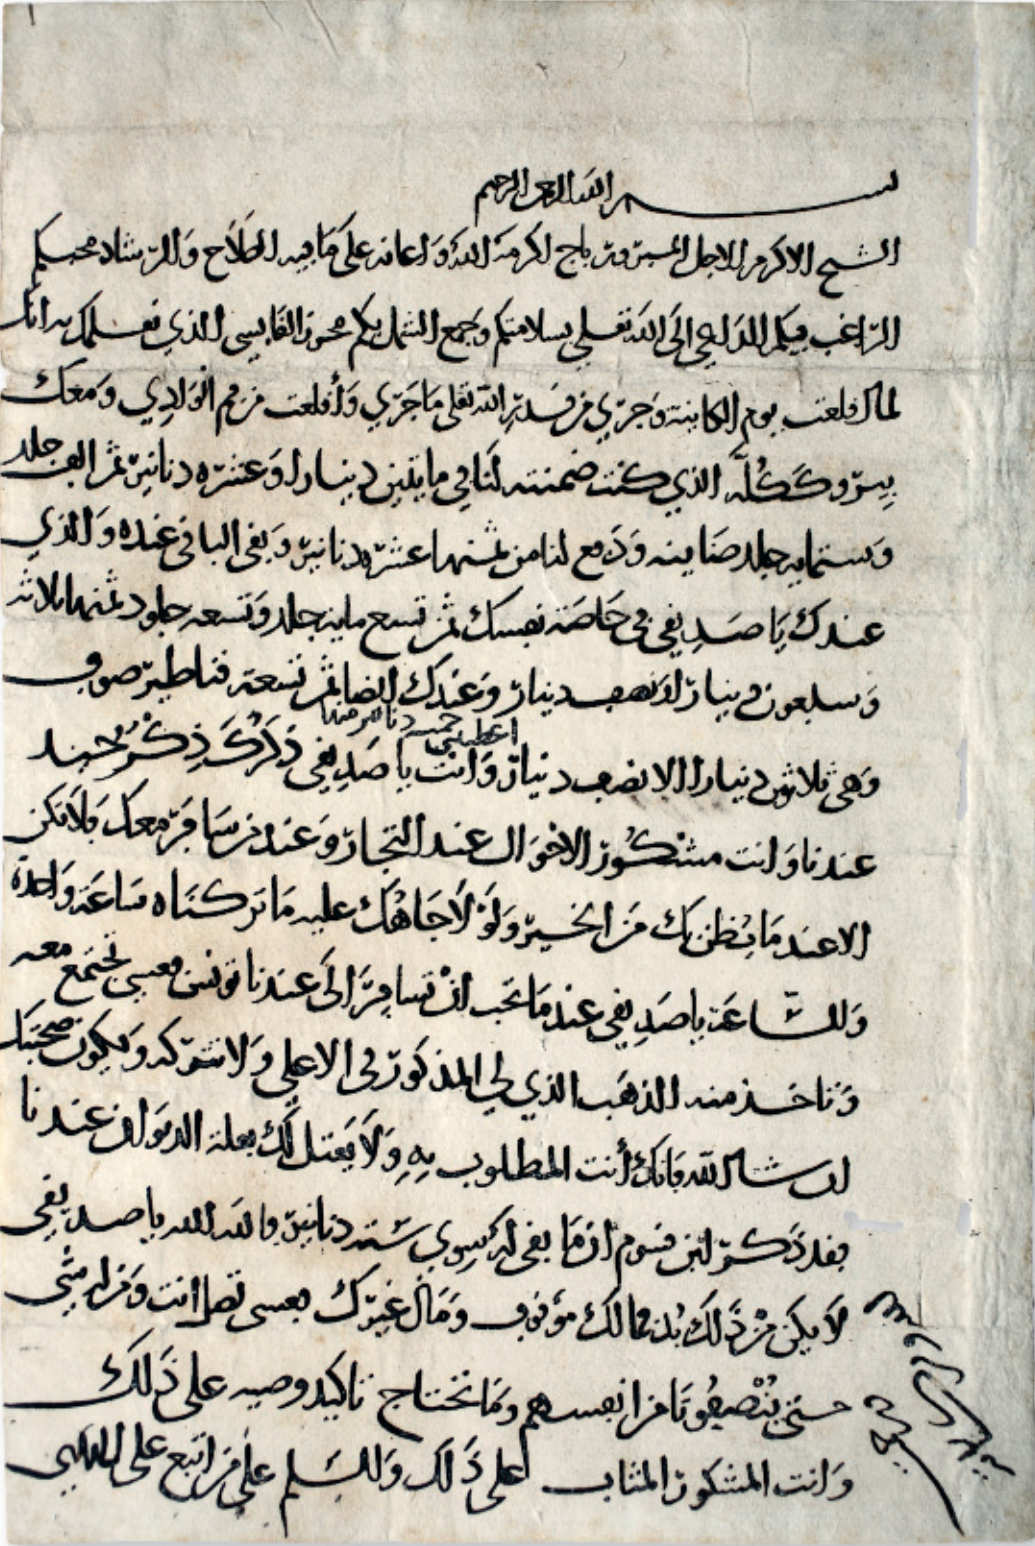 بسم الله الرحمن الرحيم
الشيخ الاكرم الاجل المسير وتر باج اكرمه الله واعانه على ما فيه الصلاح والرشاد محبكم
الراغب فيكم الداعي الى الله تعلى بسلامتكم وجمع الشمل بكم محرز القابسي الذي نعلمك به انك
لما اقلعت يوم الكاينة وجرى من قدر الله تعلى ما جرى وأقلعت من فم الوادي ومعك
بيرو ككله الذي كنت ضمنته لنا في مايتين دينارا وعشره دنانير ثمن الف جلد
وستمايه جلد ضانيه ودفع لنا من ثمنها عشرة دنانير وبقى الباقي عنده والذي
عندك يا صديقي في خاصة نفسك ثمن تسع مايه جلد وتسعه جلود ثمنها ثلاثه
وسبعون دينار ونصف دينار وعندك ايضا ثمن تسعة قناطير صوف
وهي ثلاثون دينارا الا نصف دينار اعطيتني خمسه دنانير منها وانت يا صديقي ذكرك ذكر جيد
عندنا وانت مشكور الاحوال عند التجار وعند من سافر معك فلا تكن
الا عند ما يظن بك من الخير ولو لا جاهك عليه ما تركناه ساعة واحدة
وللساعة يا صديقي عند ما تحب ان تسافر الى عندنا تونس فعسى تجتمع معه
وتاخذ منه الذهب الذي لي المذكور في الاعلى ولا تتركه ويكون صحبتك
ان شا الله فانك أنت المطلوب به ولا يعتل لك بعلة الديوان عندنا
فقد ذكر لبن قسوم ان ما بقى له سوى ستة دنانير فالله الله يا صديقي
لا يكن من ذلك بد فمالك موقوف ومال غيرك فعسى تصل انت ومن
حتى ينصفونا من انفسهم وما تحتاج تاكيد وصيه على ذلك
وانت المشكور المثاب على ذلك والسلم على من اتبع على الهدى